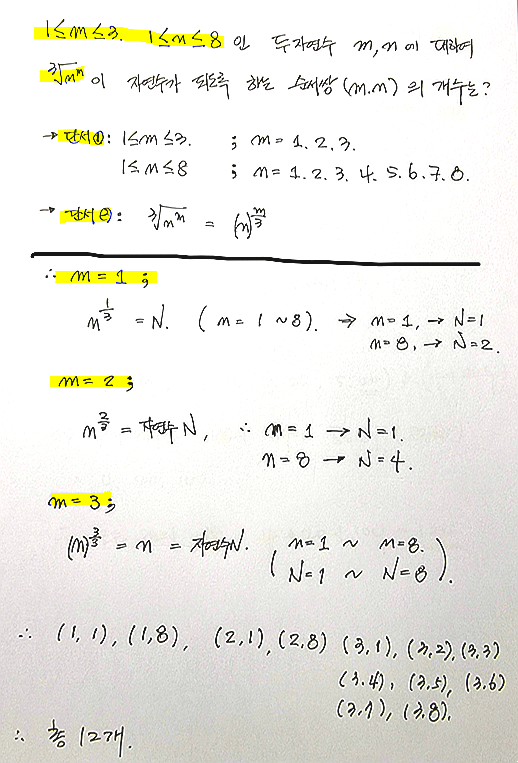 1≤m≤3. 1≤n≤8 인 두자연수 m,n에 대하여
∛n^m 이 자연수가 되도록 하는 순서쌍(m.n)의 개수는?
→ 단서①: 1≤m≤3. ; m=1.2.3.
1≤n≤8 ; n=1.2.3.4.5.6.7.8.
→ 단서②: ∛n^m = (n)^(m/3)
∴ m=1 ;
n^(1/3) = N. (n=1~8). ⇒ n=1, → N=1
n=8, → N=2.
m=2;
n^(2/3) = 자연수 N, ∴ n=1 → N=1.
n=8 → N=4.
m=3;
(n)^(3/3) = n = 자연수N. ( n=1 ~ n=8.
N=1 ~ N=8 ).
∴ (1,1), (1,8), (2,1), (2,8) (3,1), (3,2), (3,3)
(3.4), (3,5), (3.6)
(3,7), (3,8).
∴ 총 12개.